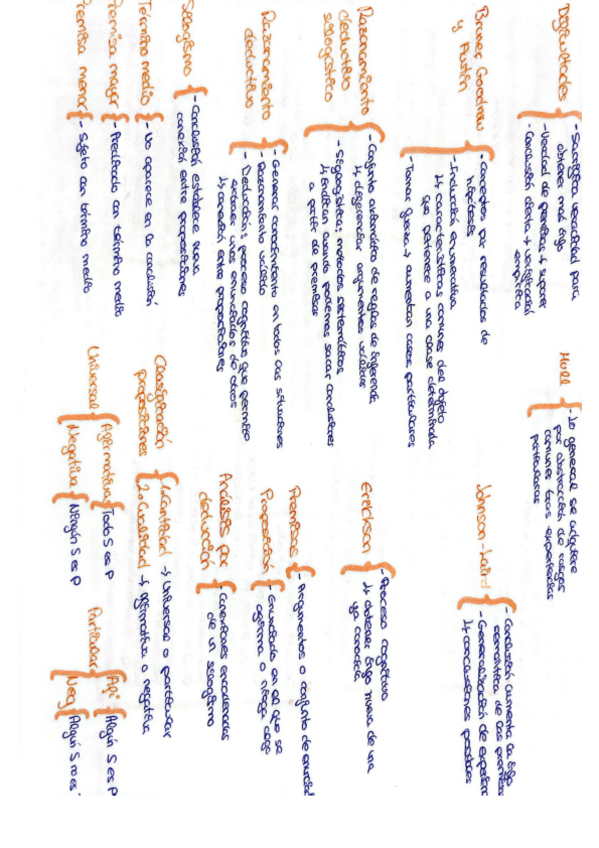 Dificultades
- Sacrifica veracidad para
obtener más info
- Verdad de premisas + superior
- Conclusión cierta + veracidad
empírica
Hull
- Lo general se adquiere
por abstracción de rasgos
comunes tras experiencias
particulares
Bruner Goodnow
y Austin
- Conceptos por resultados de
hipótesis
- Inducción enumerativa
↳ características comunes del objeto
que pertenece a una clase determinada
- Tomar fuerza → aumentan casos particulares
Johnson-Laird
- Conclusión aumenta la info
semántica de las premisas
- Generalización de
↳ conclusiones posibles
Razonamiento
deductivo
silogístico
- Conjunto automático de reglas de inferencia
↳ diferenciar argumentos válidos
- Silogística: métodos sistemáticos
↳ indican cuando podemos sacar conclusiones
a partir de premisas
Erickson
- Proceso cognitivo
↳ obtener info nueva de una
ya conocida
Razonamiento
deductivo
- Generar conocimiento en todas las situaciones
- Razonamiento válido
- Deducción: proceso cognitivo que permite
extraer unos enunciados de otros
↳ conexión entre proposiciones
Premisas
- Argumentos o conjunto de
Proposición
- Enunciado en el que se
afirma o niega algo
Silogismo
- Conclusión establece nueva
conexión entre proposiciones
Análisis por
deducción
- Conexiones encadenadas
de un silogismo
Término medio
- No aparece en la conclusión
Premisa mayor
- Predicado con término medio
Premisa menor
- Sujeto con término medio
Clasificación
proposiciones
1. Cantidad → Universal o particular
2. Cualidad → afirmativa o negativa
Universal
Afirmativa
Todo S es P
Negativa
Ningún S es P
Particular
Afi
Algún S es P
Neg
Algún S no es